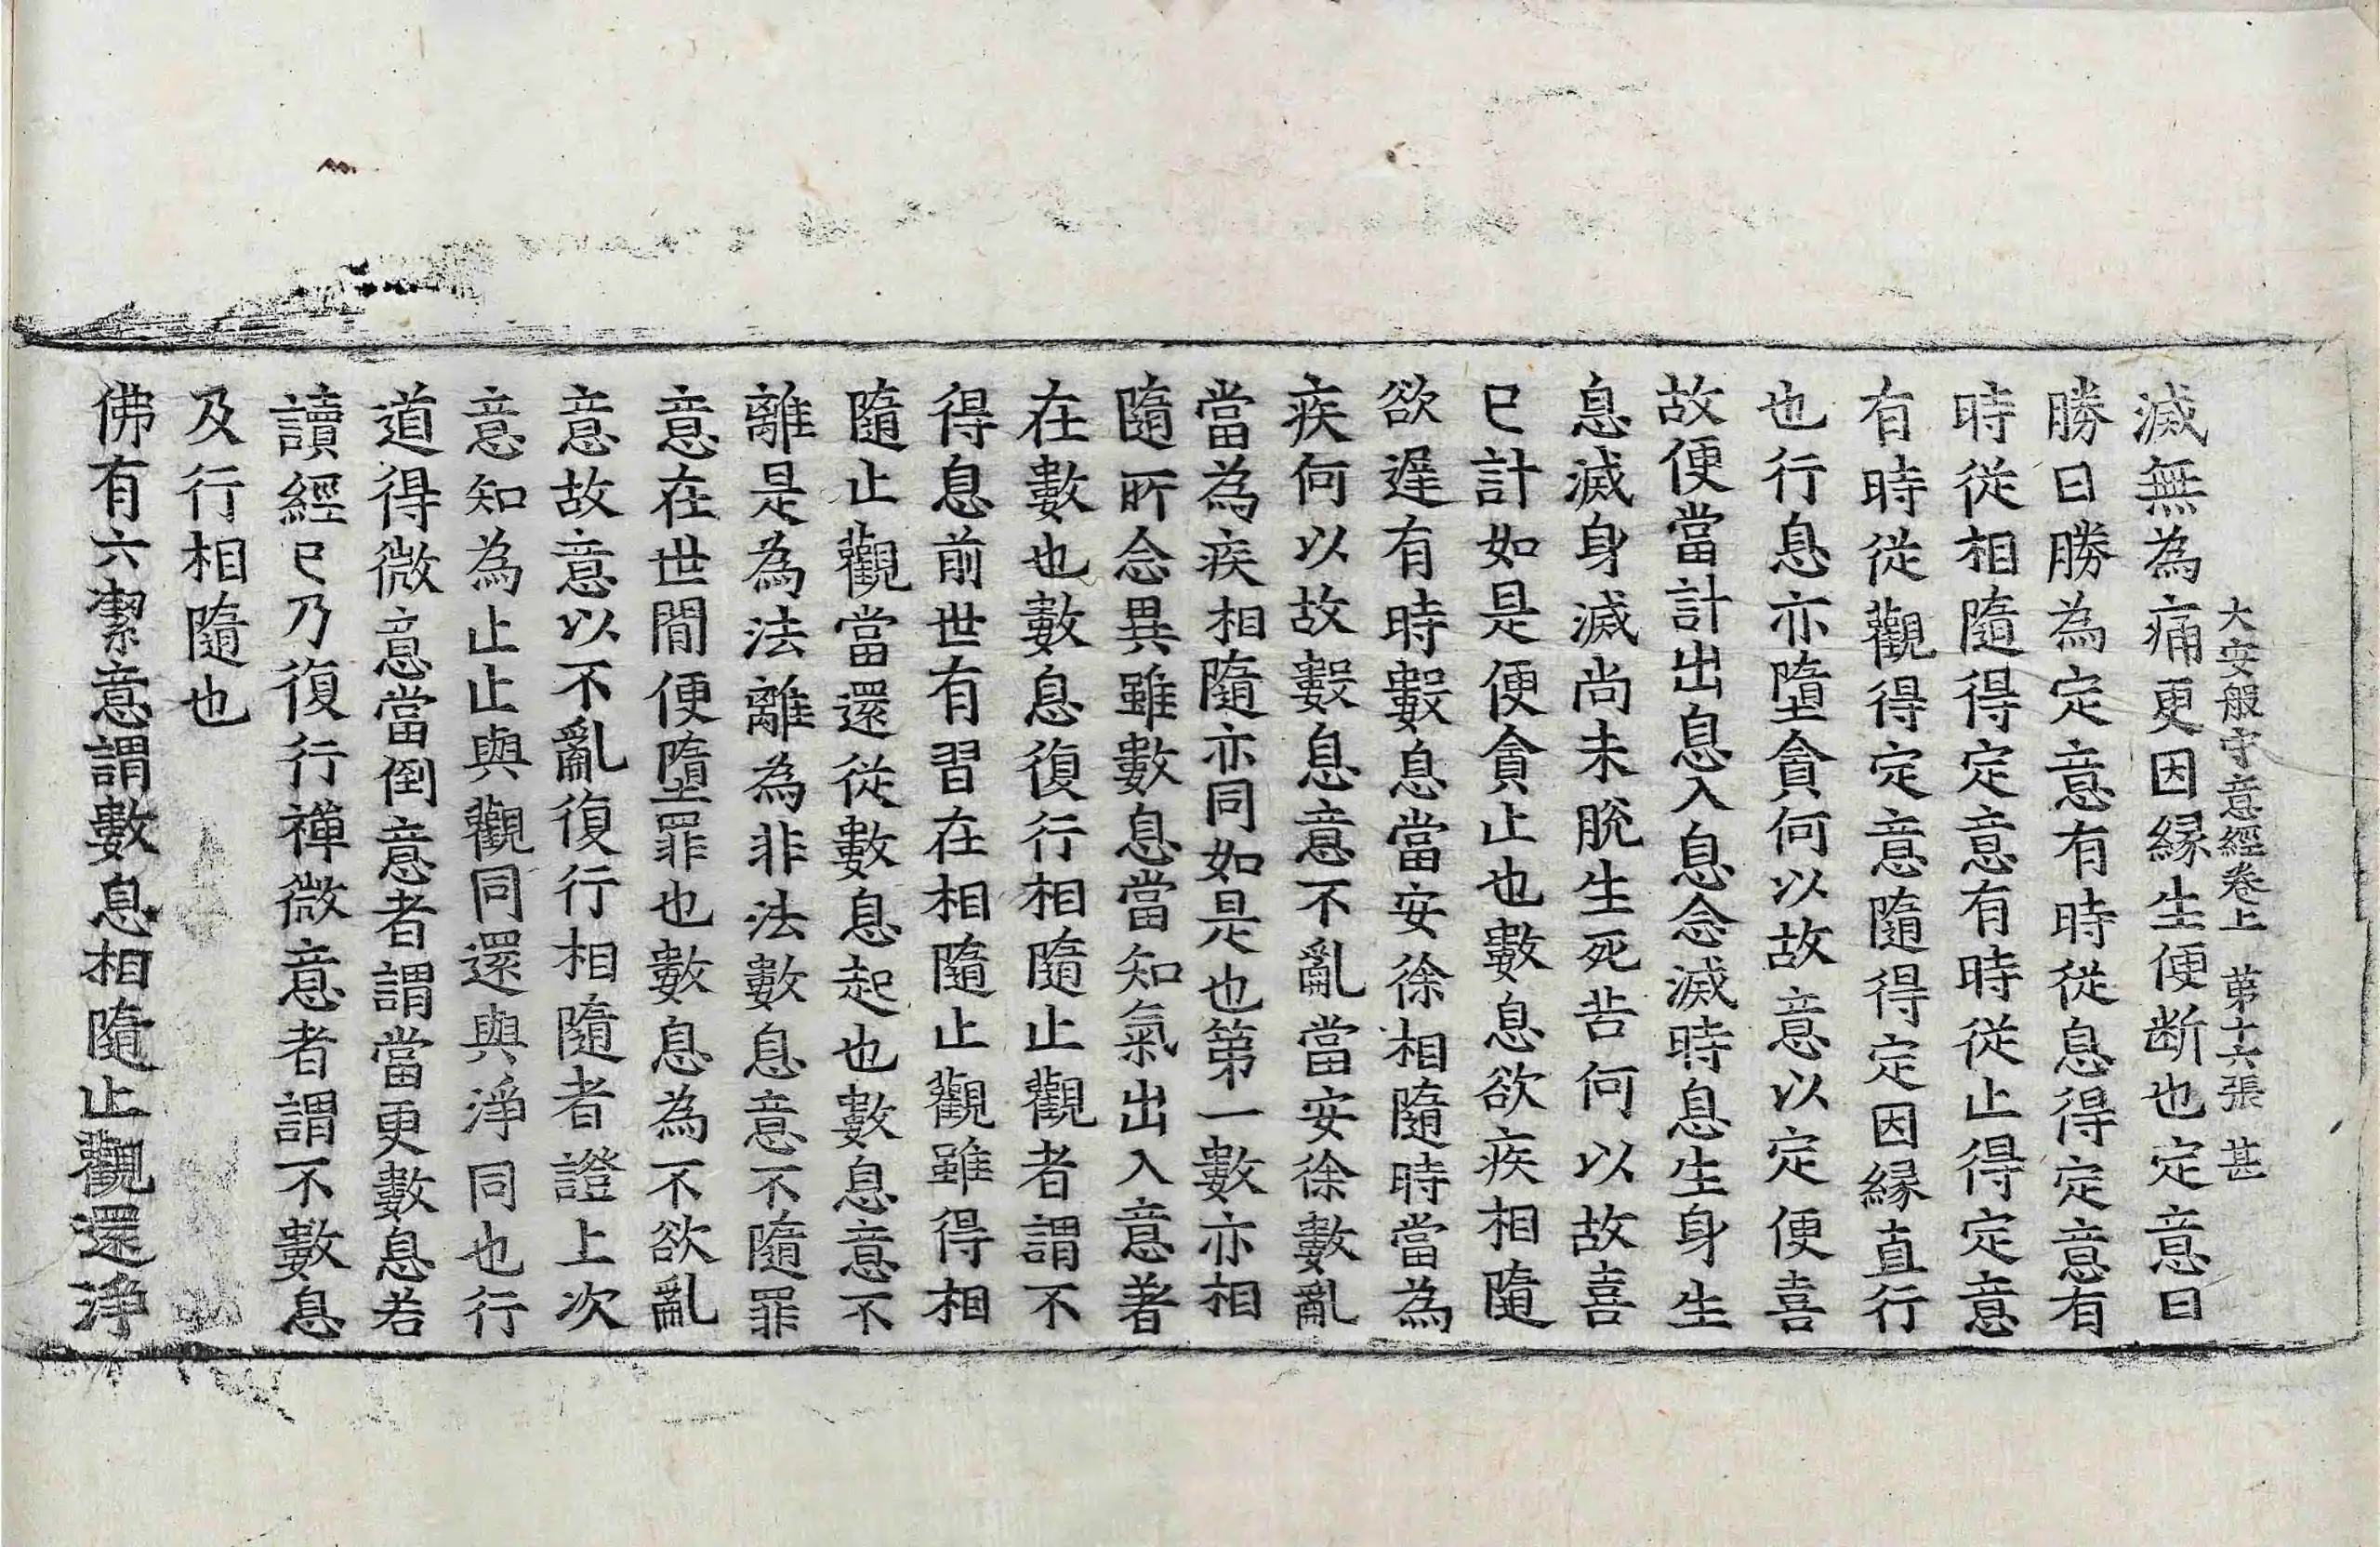 大安般守意經卷上　第十六張　甚
滅無為痛更因縁生便断也定意日
勝日勝為定意有時從息得定意有
時從相隨得定意有時從止得定意
有時從觀得定意隨得定因縁直行
也行息亦墮貪何以故意以定便喜
故便當計出息入息念滅時息生身生
息滅身滅尚未脫生死苦何以故喜
已計如是便貪止也數息欲疾相隨
欲遲有時數息當安徐相隨時當為
疾何以故數息意不亂當安徐數亂
當為疾相隨亦同如是也第一數亦相
隨所念異雖數息當知氣出入意著
在數也數息復行相隨止觀者謂不
得息前世有習在相隨止觀雖得相
隨止觀當還從數息起也數息意不
離是為法離為非法數息意不隨罪
意在世間便墮罪也數息為不欲亂
意故意以不亂復行相隨者證上次
意知為止止與觀同還與淨同也行
道得微意當倒意者謂當更數息若
讀經已乃復行禪微意者謂不數息
及行相隨也
佛有六潔意謂數息相隨止觀還淨